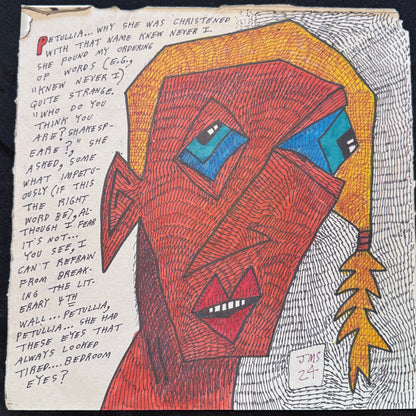 PETULLIA... WHY SHE WAS CHRISTENED
WITH THAT NAME KNEW NEVER I.
SHE FOUND MY ORDERING
OF WORDS (E.G.,
"KNEW NEVER I)
QUITE STRANGE.
"WHO DO YOU
THINK YOU
ARE? SHAKESP-
EARE?," SHE
ASKED, SOME
WHAT IMPETU-
OUSLY (IF THIS
THE RIGHT
WORD BE), AL-
THOUGH I FEAR
IT'S NOT...
YOU SEE, I
CAN'T REFRAIN
FROM BREAK-
ING THE LIT-
ERARY 4TH
WALL... PETULLIA,
PETULLIA... SHE HAD
THESE EYES THAT
ALWAYS LOOKED
TIRED... BEDROOM
EYES?
JMS
24